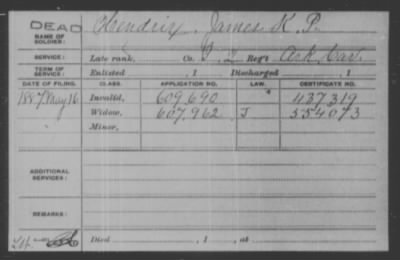 DEAD
NAME OF SOLDIER: Hendrix, James K. P.
SERVICE: Late rank, Co. I, 2 Reg't Ark Cav.
TERM OF SERVICE: Enlisted , 1 Discharged , 1
DATE OF FILING. CLASS. APPLICATION NO. LAW. CERTIFICATE NO.
1887 May 16 Invalid, 609.690 437319
Widow, 607.962 J 554073
Minor,
ADDITIONAL SERVICES:
REMARKS:
Died , 1 , at